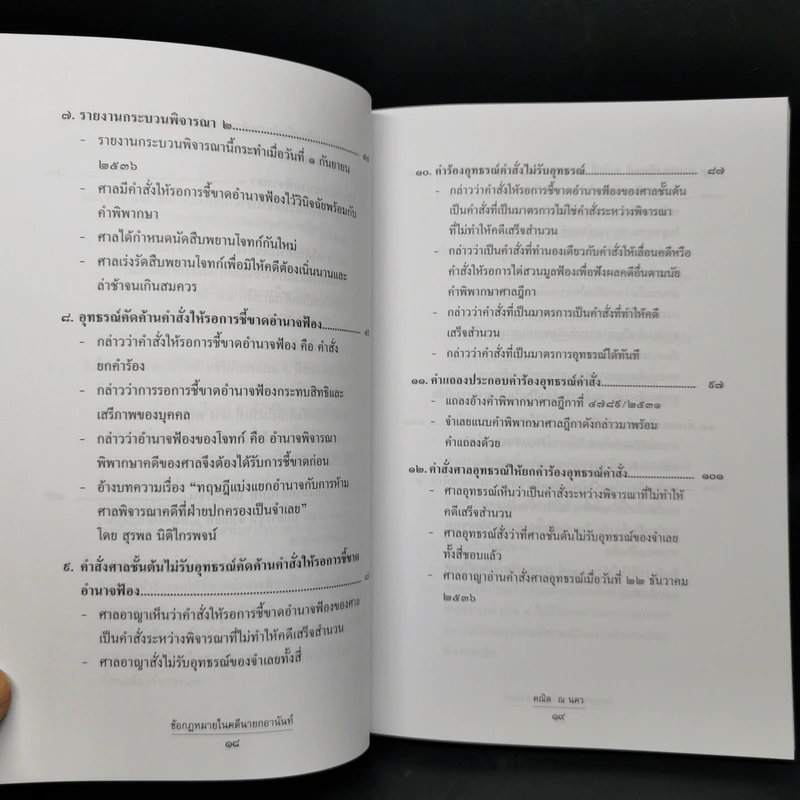 ๗. รายงานกระบวนพิจารณา ๒
- รายงานกระบวนพิจารณานี้กระทำเมื่อวันที่ ๑ กันยายน
๒๕๓๖
- ศาลมีคำสั่งให้รอการชี้ขาดอำนาจฟ้องไว้วินิจฉัยพร้อมกับ
คำพิพากษา
- ศาลได้กำหนดนัดสืบพยานโจทก์กันใหม่
- ศาลเร่งรัดสืบพยานโจทก์เพื่อมิให้คดีต้องเนิ่นนานและ
ล่าช้าจนเกินสมควร
๘. อุทธรณ์คัดค้านคำสั่งให้รอการชี้ขาดอำนาจฟ้อง
- กล่าวว่าคำสั่งให้รอการชี้ขาดอำนาจฟ้อง คือ คำสั่ง
ยกคำร้อง
- กล่าวว่าการรอการชี้ขาดอำนาจฟ้องกระทบสิทธิและ
เสรีภาพของบุคคล
- กล่าวว่าอำนาจฟ้องของโจทก์ คือ อำนาจพิจารณา
พิพากษาคดีของศาลจึงต้องได้รับการชี้ขาดก่อน
- อ้างบทความเรื่อง “ทฤษฎีแบ่งแยกอำนาจกับการห้าม
ศาลพิจารณาคดีที่ฝ่ายปกครองเป็นจำเลย”
โดย สุรพล นิติไกรพจน์
๙. คำสั่งศาลชั้นต้นไม่รับอุทธรณ์คัดค้านคำสั่งให้รอการชี้ขาด
อำนาจฟ้อง
- ศาลอาญาเห็นว่าคำสั่งให้รอการชี้ขาดอำนาจฟ้องของศาล
เป็นคำสั่งระหว่างพิจารณาที่ไม่ทำให้คดีเสร็จสำนวน
- ศาลอาญาสั่งไม่รับอุทธรณ์ของจำเลยทั้งสี่
ข้อกฎหมายในคดีนายกอานันท์
๑๘
๑๐. คำร้องอุทธรณ์คำสั่งไม่รับอุทธรณ์ ๘๗
- กล่าวว่าคำสั่งให้รอการชี้ขาดอำนาจฟ้องของศาลชั้นต้น
เป็นคำสั่งที่เป็นมาตรการไม่ใช่คำสั่งระหว่างพิจารณา
ที่ไม่ทำให้คดีเสร็จสำนวน
- กล่าวว่าเป็นคำสั่งที่ทำนองเดียวกับคำสั่งให้เลื่อนคดีหรือ
คำสั่งให้รอการไต่สวนมูลฟ้องเพื่อฟังผลคดีอื่นตามนัย
คำพิพากษาศาลฎีกา
- กล่าวว่าคำสั่งที่เป็นมาตรการเป็นคำสั่งที่ทำให้คดี
เสร็จสำนวน
- กล่าวว่าคำสั่งที่เป็นมาตรการอุทธรณ์ได้ทันที
๑๑. คำแถลงประกอบคำร้องอุทธรณ์คำสั่ง ๙๗
- แถลงอ้างคำพิพากษาศาลฎีกาที่ ๔๗๘๙/๒๕๓๑
- จำเลยแนบคำพิพากษาศาลฎีกาดังกล่าวมาพร้อม
คำแถลงด้วย
๑๒. คำสั่งศาลอุทธรณ์ให้ยกคำร้องอุทธรณ์คำสั่ง ๑๐๑
- ศาลอุทธรณ์เห็นว่าเป็นคำสั่งระหว่างพิจารณาที่ไม่ทำให้
คดีเสร็จสำนวน
- ศาลอุทธรณ์สั่งว่าที่ศาลชั้นต้นไม่รับอุทธรณ์ของจำเลย
ทั้งสี่ชอบแล้ว
- ศาลอาญาอ่านคำสั่งศาลอุทธรณ์เมื่อวันที่ ๒๒ ธันวาคม
๒๕๓๖
คณิต ณ นคร
๑๙